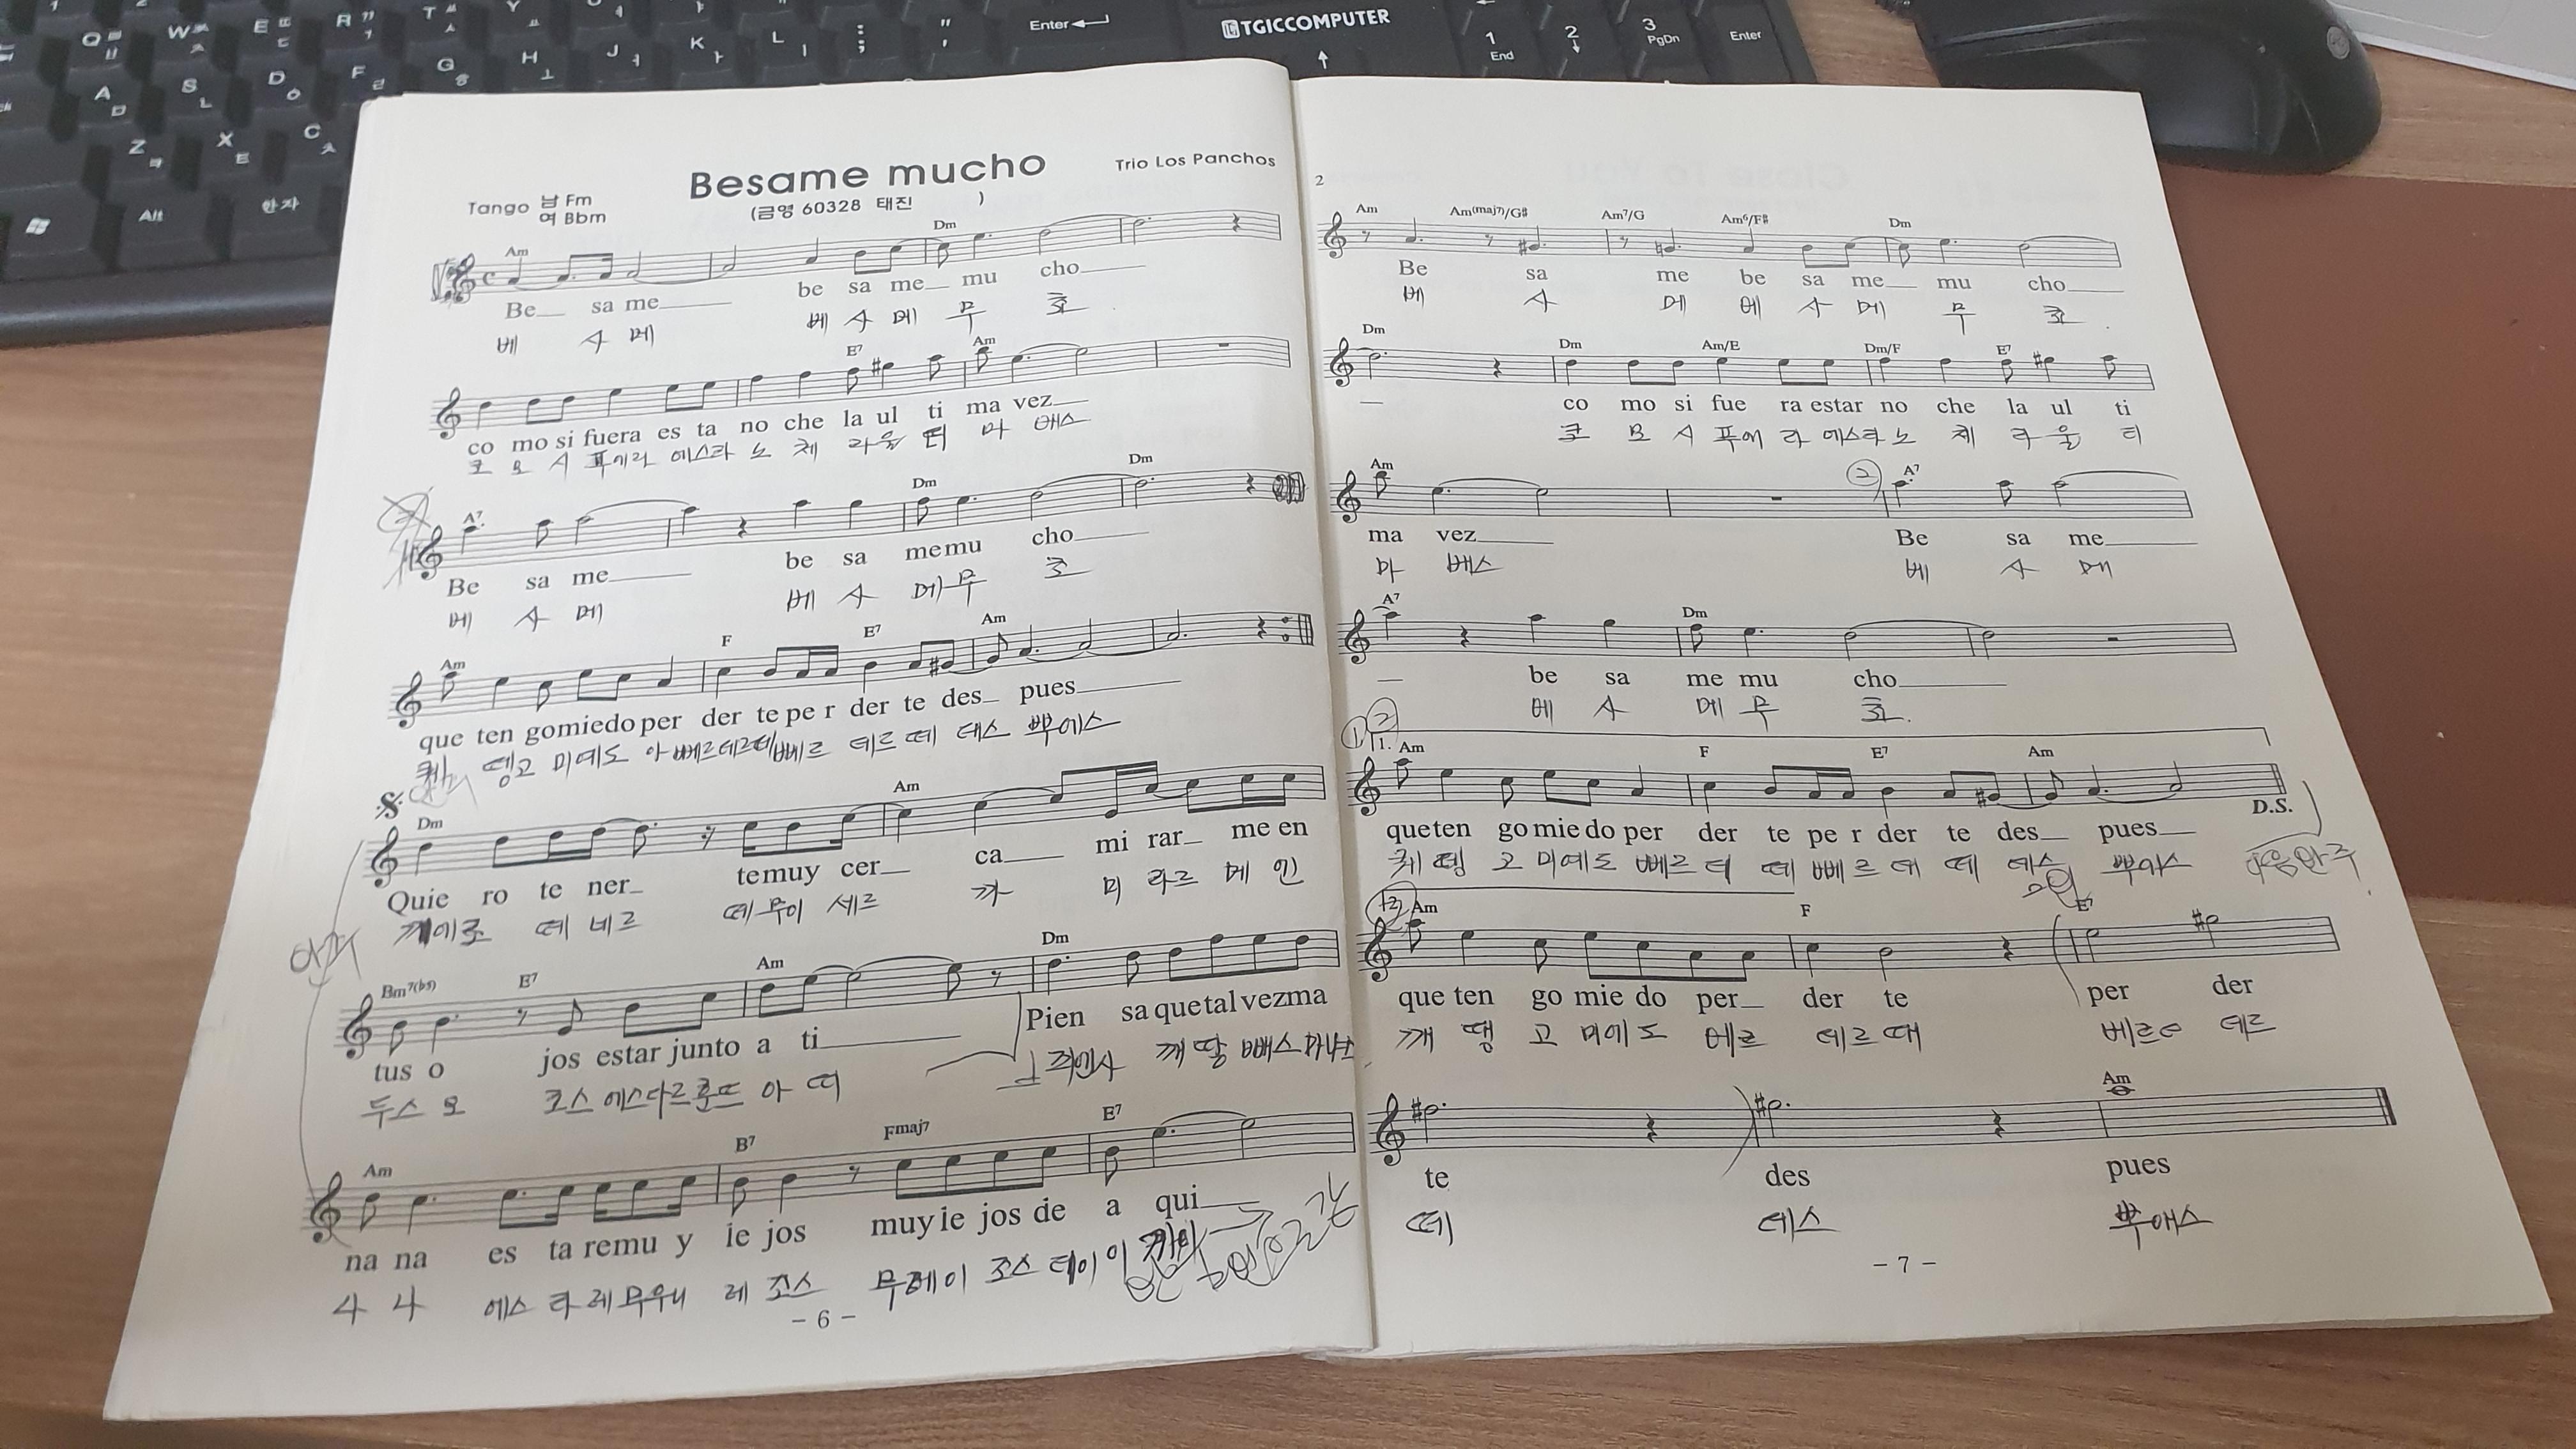 Enter
TGICCOMPUTER
1 End
2
3 PgDn
Enter
Alt
한자
Besame mucho
Trio Los Panchos
Tango 남 Fm
여 Bbm
(금영 60328 태진 )
Am Dm
Be sa me be sa me mu cho
베 사 메 베 사 메 무 쵸
E7 Am
co mo si fuera es ta no che la ul ti ma vez
코 모 시 푸에라 에스타 노 체 라 울 티 마 베스
A7 Dm Dm
Be sa me be sa memu cho
베 사 메 베 사 메 무 쵸
Am F E7 Am
que ten gomiedo per der te pe r der te des pues
뗑고 미에도 데르 떼 데스 뿌에스
Dm Am
Quie ro te ner temuy cer ca mi rar me en
떼 네르 떼 무이 세르 까 미 라르 메 인
Bm7(b5) E7 Am Dm
tus o jos estar junto a ti Pien sa quetal vezma
두스 오 코스 에스타르 훈또 아 띠 삐엔사 깨 딸 뻬스 마냐
Am B7 Fmaj7 E7
na na es ta remu y ie jos muy ie jos de a qui
에스 타 레 무우이 레 죠스 무레이 죠스 데이
- 6 -
2
Am Am(maj7)/G# Am7/G Am6/F# Dm
Be sa me be sa me mu cho
베 사 메 베 사 메 무 쵸
Dm Dm Am/E Dm/F E7
co mo si fue ra estar no che la ul ti
코 모 시 푸에 라 에스타 노 체 라 울 티
Am ② A7
ma vez Be sa me
마 베스 베 사 메
A7 Dm
be sa me mu cho
베 사 메 무 쵸
① ②
1. Am F E7 Am
queten go mie do per der te pe r der te des pues
D.S.
퀘 뗑 고 미에도 뻬르 데 떼 뻬르 데 떼 데스 뿌에스
Am F E7
que ten go mie do per der te per der
깨 땡 고 미에도 베르 데르 때 베르 데르
Am
te des pues
떼 데스 뿌애스
- 7 -